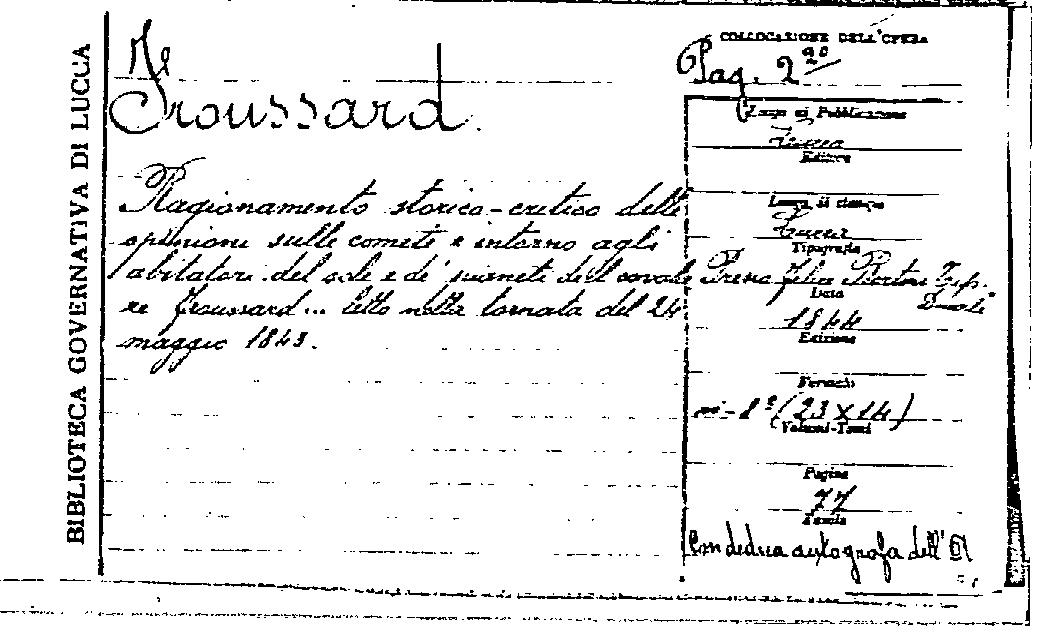 BIBLIOTECA GOVERNATIVA DI LUCCA
Froussard.
Ragionamento storico-critico delle
opinioni sulle comete e intorno agli
abitatori del sole e de' pianeti del cavalie
re Froussard... letto nella tornata del 24
maggio 1843.
COLLOCAZIONE DELL'OPERA
Pag. 2
Luogo di Pubblicazione
Lucca
Editore
Luogo di stampa
Lucca
Tipografia
Presso Felice Bertini Tip.
Ducale
Data
1844
Edizione
Formato
in-8° (23 x 14)
Volumi-Tomi
Pagine
77
Tavole
Con dedica autografa dell'A